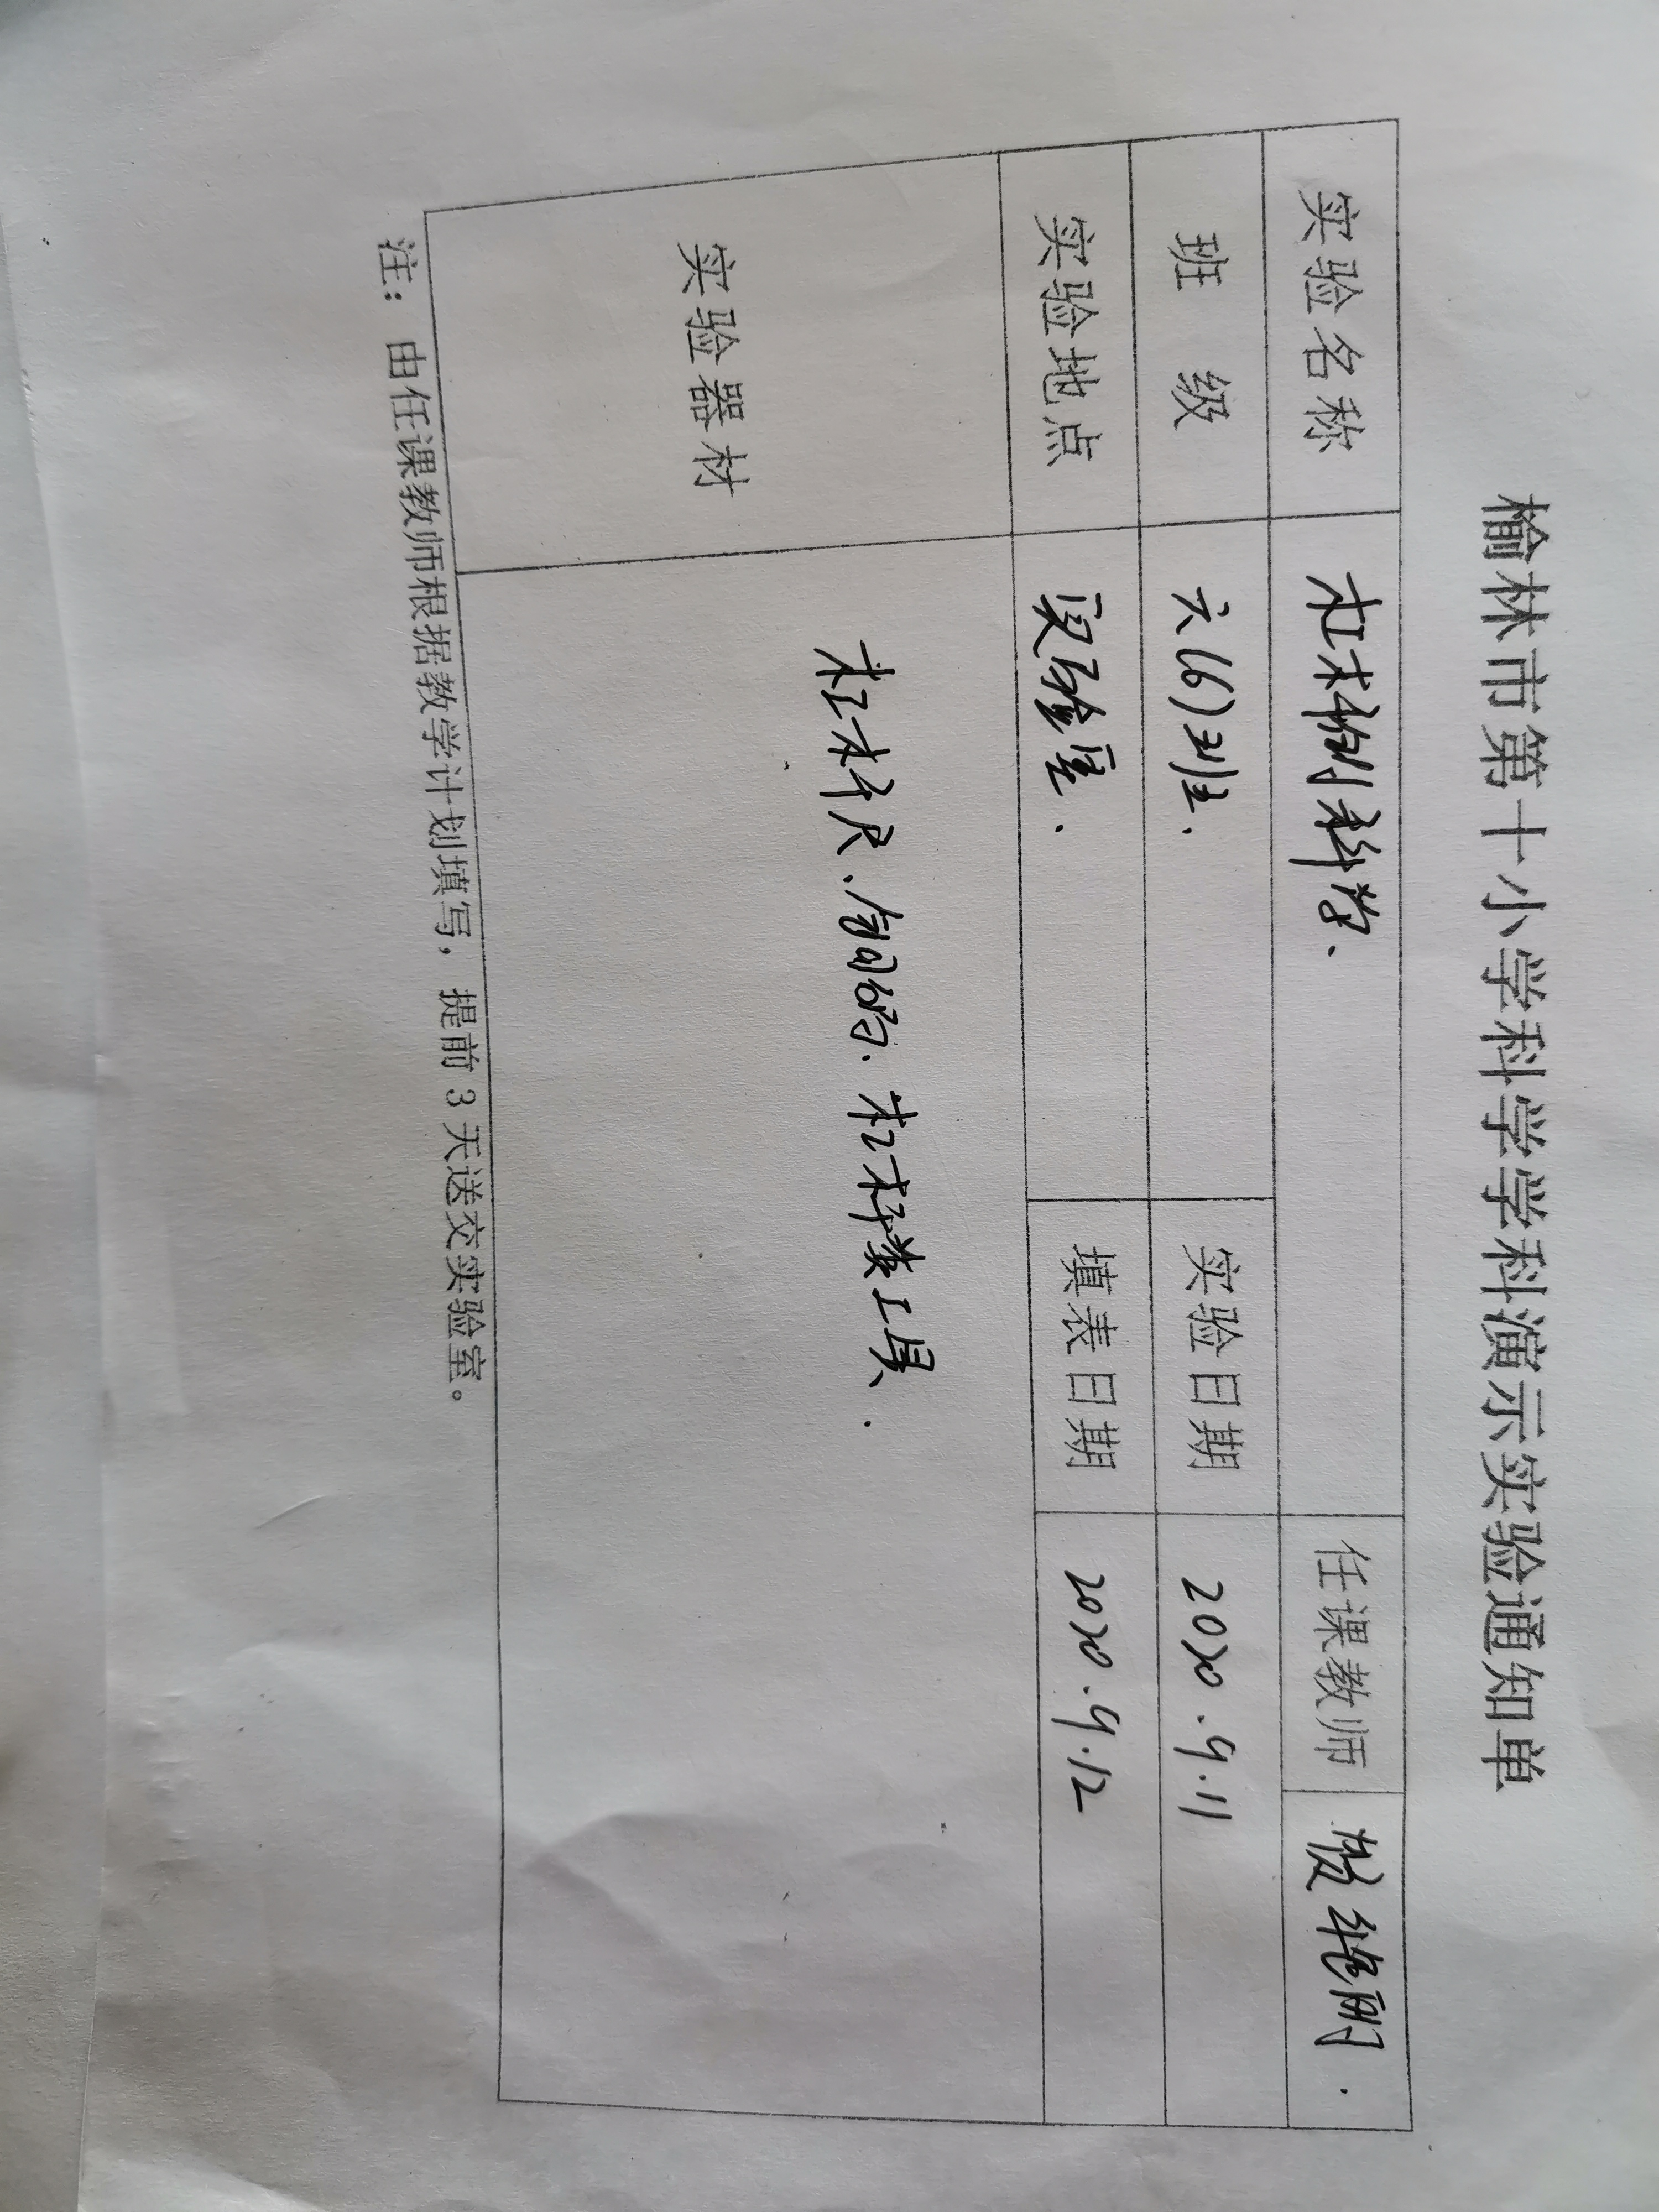 榆林市第十小学科学学科演示实验通知单
实验名称 杠杆的科学. 任课教师
班 级 六(6)班. 实验日期 2020.9.11
实验地点 实验室. 填表日期 2020.9.12
实验器材 杠杆尺、钩码、杠杆类工具.
注：由任课教师根据教学计划填写，提前3天送交实验室。